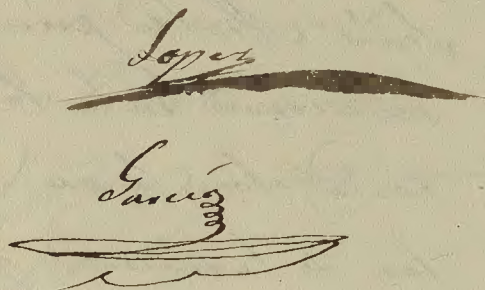 Lopez
García